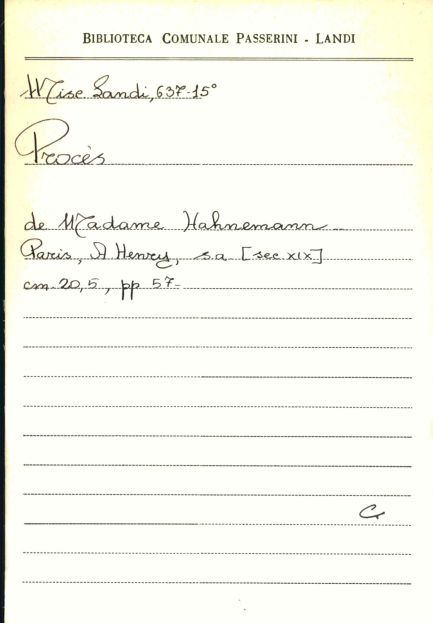 BIBLIOTECA COMUNALE PASSERINI - LANDI
Misc Landi, 637-15°
Procès
de Madame Hahnemann
Paris, A. Henry, s.a [sec. XIX]
cm 20,5, pp 57-